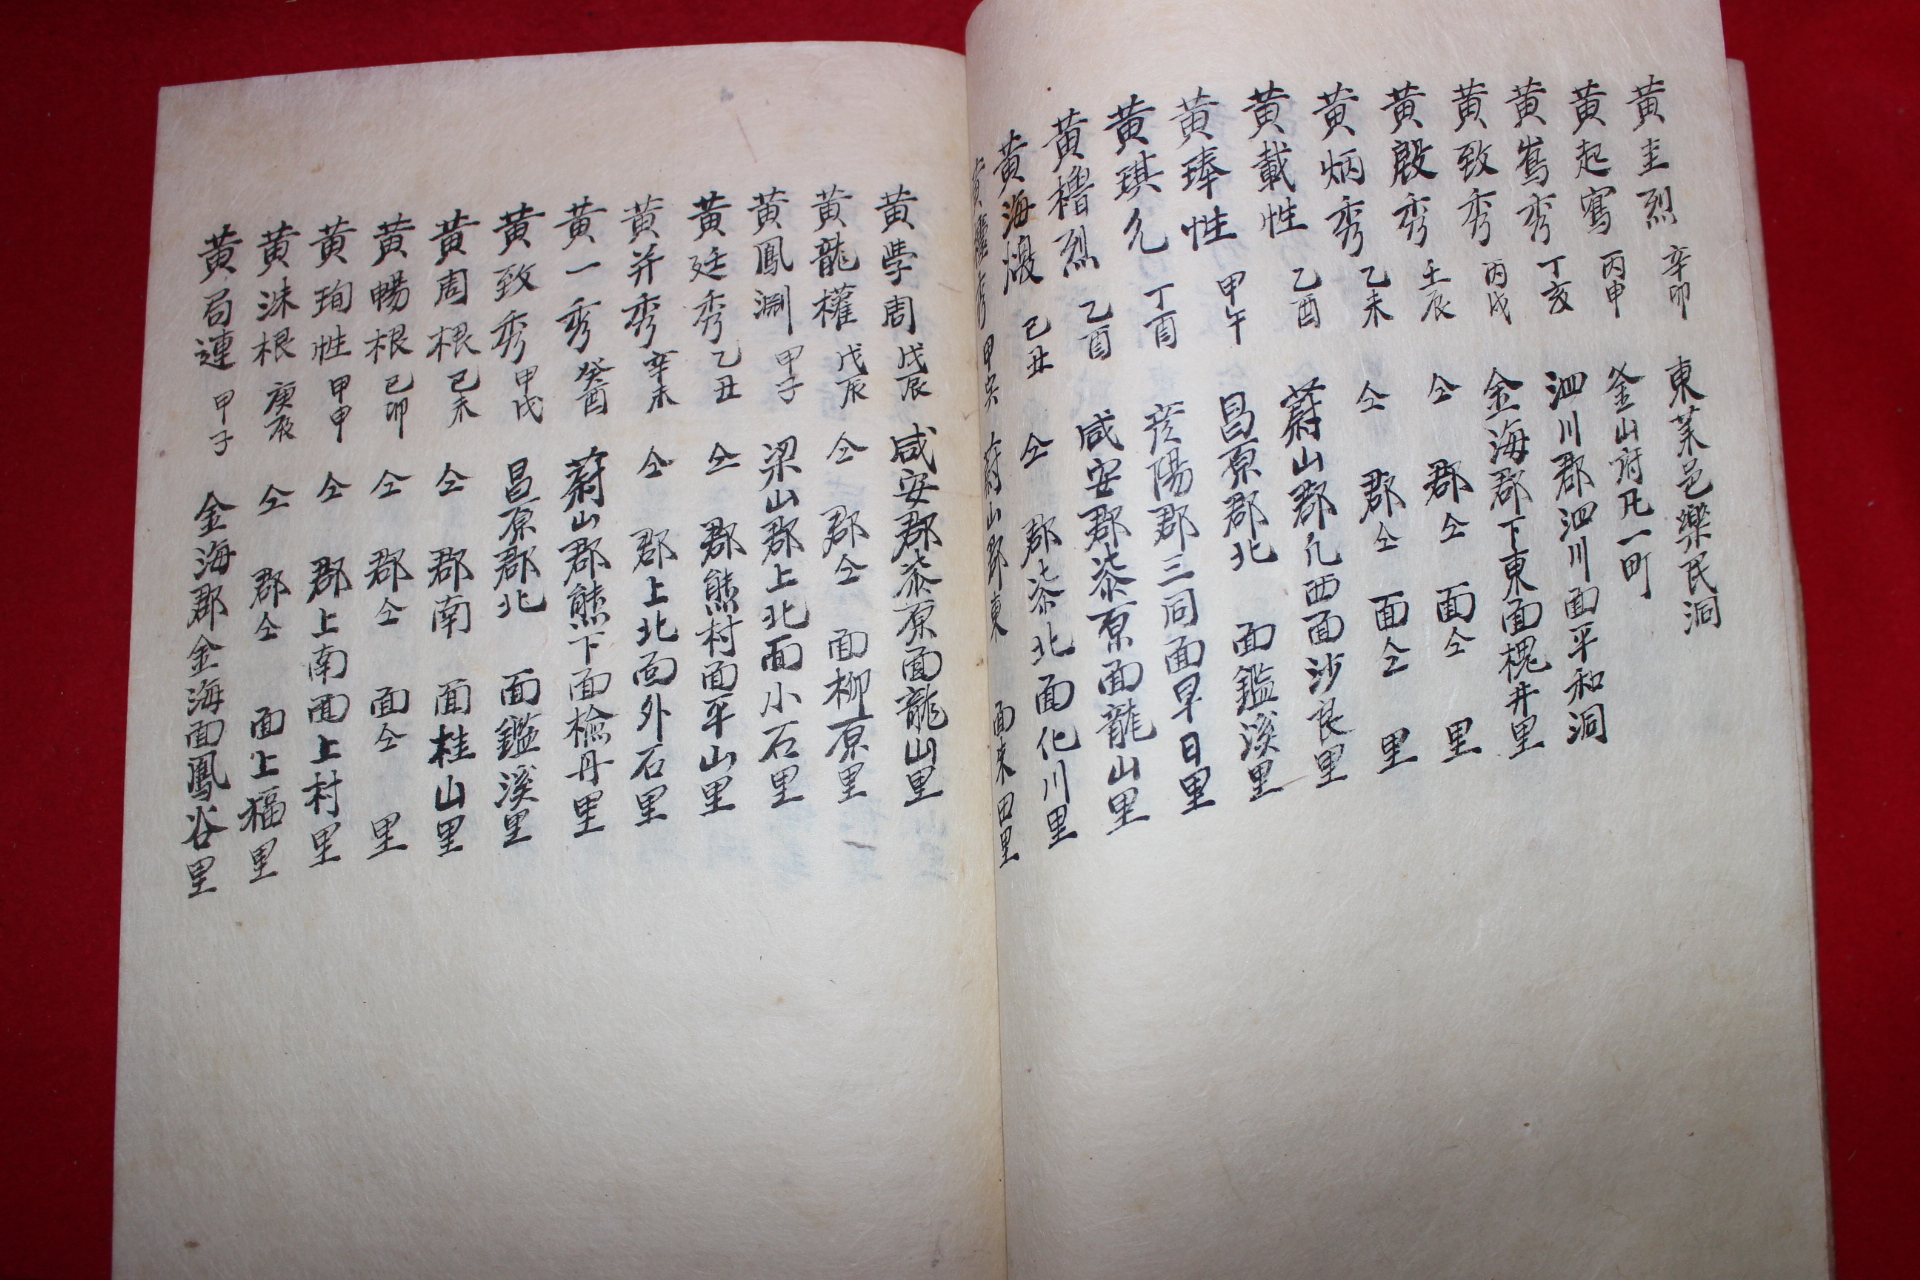 黄圭烈 辛卯 東萊邑樂民洞
黄起寯 丙申 釜山府凡一町
黄嵩秀 丁亥 泗川郡泗川面平和洞
黄致秀 丙戌 金海郡下東面槐井里
黄殷秀 壬辰 仝 郡仝 面仝 里
黄炳秀 乙未 仝 郡仝 面仝 里
黄載性 乙酉 蔚山郡凡西面沙良里
黄琫性 甲午 昌原郡北 面鑑溪里
黄琪允 丁酉 彦陽郡三同面早日里
黄櫓烈 乙酉 咸安郡漆原面龍山里
黄海 己丑 仝 郡漆北面化川里
黄 秀 甲寅 蔚山郡東 面東田里
黄學周 戊辰 咸安郡漆原面龍山里
黄龍權 戊辰 仝 郡仝 面柳原里
黄鳳淵 甲子 梁山郡上北面小石里
黄廷秀 乙丑 仝 郡熊村面平山里
黄并秀 辛未 仝 郡上北面外石里
黄一秀 癸酉 蔚山郡熊下面檢丹里
黄致秀 甲戌 昌原郡北 面鑑溪里
黄周根 己未 仝 郡南 面桂山里
黄暢根 己卯 仝 郡仝 面仝 里
黄珣性 甲申 仝 郡上南面上村里
黄洙根 庚辰 仝 郡仝 面上福里
黄局連 甲子 金海郡金海面鳳谷里